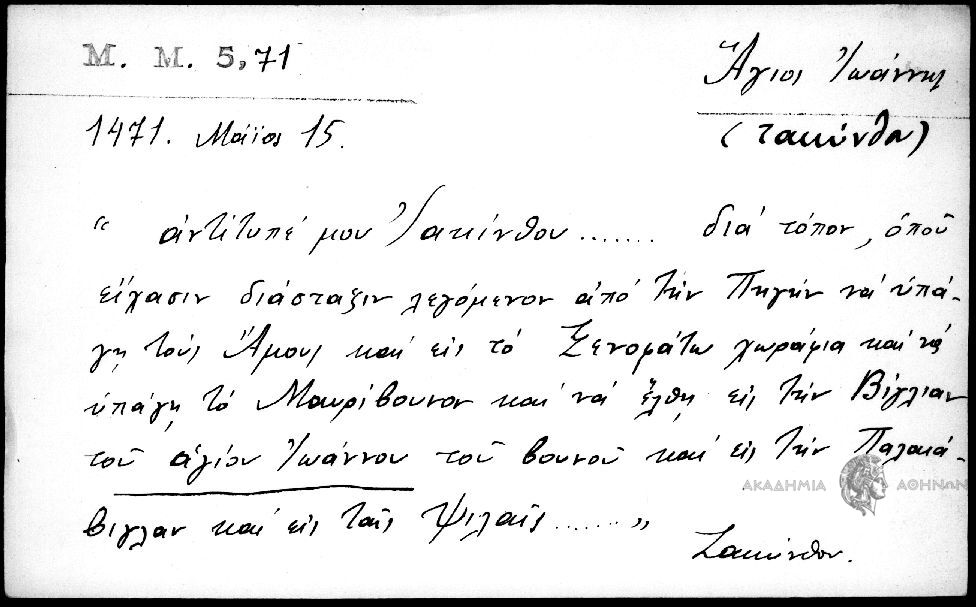 M. M. 5,71
Ἅγιος Ἰωάννης
1471. Μάϊος 15.
(Ζακύνθου)
“ ἀντίτυπέ μου Ζακύνθου....... διά τόπον, ὁποῦ
εἴχασιν διάσταξιν λεγόμενον ἀπό τήν Πηγήν νά ὑπά-
γῃ τούς Ἅμους καί εἰς τό Ξενομάτω χωράφια καί νά
ὑπάγῃ τό Μαυρίβουνον καί νά ἔλθῃ εἰς τήν Βίγλιαν
τοῦ ἁγίου Ἰωάννου τοῦ βουνοῦ καί εἰς τήν Παλαιά-
βιγλαν καί εἰς ταῖς Ψιλαῖς ......”
ΑΚΑΔΗΜΙΑ ΑΘΗΝΩΝ
Ζακύνθου.